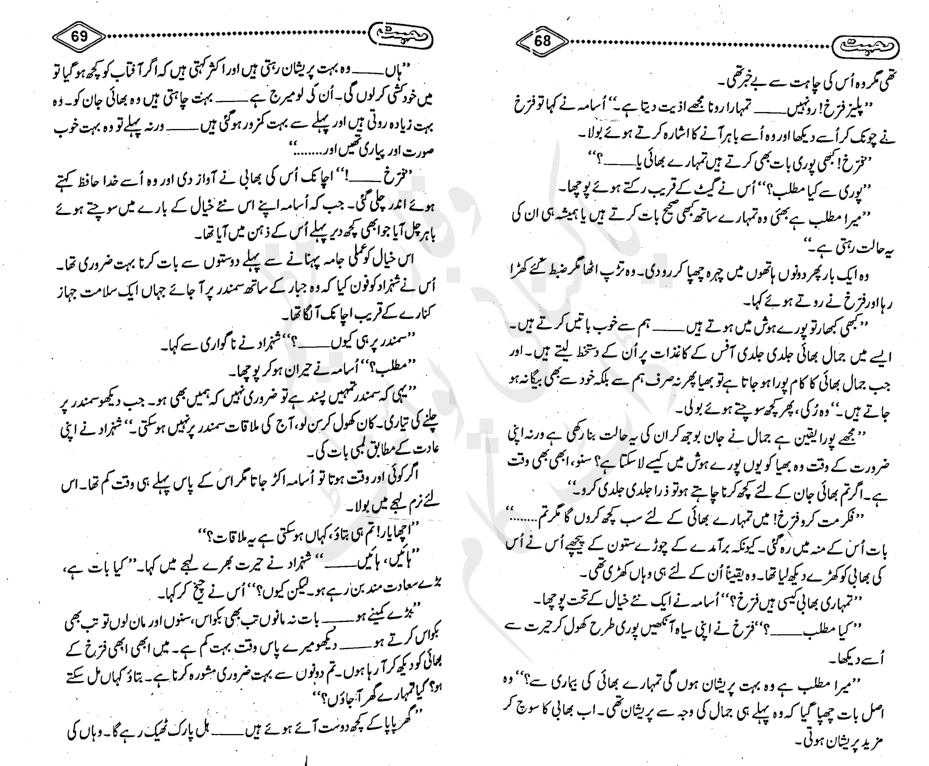 محبت
68
تھی مگر وہ اُس کی چاہت سے بے خبر تھی۔
”پلیز فرّخ! رو نہیں ____ تمہارا رونا مجھے اذیت دیتا ہے۔“ اُسامہ نے کہا تو فرّخ
نے چونک کر اُسے دیکھا اور وہ اُسے باہر آنے کا اشارہ کرتے ہوئے بولا۔
”فرّخ! کبھی پوری بات بھی کرتے ہیں تمہارے بھائی یا ____؟“
”پوری سے کیا مطلب؟“ اُس نے گیٹ کے قریب رکتے ہوئے پوچھا۔
”میرا مطلب ہے بھئی وہ تمہارے ساتھ کبھی صحیح بات کرتے ہیں یا ہمیشہ ہی ان کی
یہ حالت رہتی ہے۔“
وہ ایک بار پھر دونوں ہاتھوں میں چہرہ چھپا کر رو دی۔ وہ تڑپ اٹھا مگر ضبط کئے کھڑا
رہا اور فرّخ نے روتے ہوئے کہا۔
”کبھی کبھار تو پورے ہوش میں ہوتے ہیں ____ ہم سے خوب باتیں کرتے ہیں۔
ایسے میں جمال بھائی جلدی جلدی آفس کے کاغذات پر اُن کے دستخط لیتے ہیں۔ اور
جب جمال بھائی کا کام پورا ہو جاتا ہے تو بھیا پھر نہ صرف ہم سے بلکہ خود سے بھی بیگانہ ہو
جاتے ہیں۔“ وہ رُکی، پھر کچھ سوچتے ہوئے بولی۔
”مجھے پورا یقین ہے جمال نے جان بوجھ کر ان کی یہ حالت بنا رکھی ہے ورنہ اپنی
ضرورت کے وقت وہ بھیا کو یوں پورے ہوش میں کیسے لا سکتا ہے؟ سنو، ابھی بھی وقت
ہے۔ اگر تم بھائی جان کے لئے کچھ کرنا چاہتے ہو تو ذرا جلدی جلدی کرو۔“
”فکر مت کرو فرّخ! میں تمہارے بھائی کے لئے سب کچھ کروں گا مگر تم........“
بات اُس کے منہ میں رہ گئی۔ کیونکہ برآمدے کے چوڑے ستون کے پیچھے اُس نے اُس
کی بھابی کو کھڑے دیکھ لیا تھا۔ وہ یقیناً اُن کے لئے ہی وہاں کھڑی تھی۔
”تمہاری بھابی کیسی ہیں فرّخ؟“ اُسامہ نے ایک نئے خیال کے تحت پوچھا۔
”کیا مطلب ____؟“ فرّخ نے اپنی سیاہ آنکھیں پوری طرح کھول کر حیرت سے
اُسے دیکھا۔
”میرا مطلب ہے وہ بہت پریشان ہوں گی تمہارے بھائی کی بیماری سے؟“ وہ
اصل بات چھپا گیا کہ وہ پہلے ہی جمال کی وجہ سے پریشان تھی۔ اب بھابی کا سوچ کر
مزید پریشان ہوتی۔
محبت
69
”ہاں ____ وہ بہت پریشان رہتی ہیں اور اکثر کہتی ہیں کہ اگر آفتاب کو کچھ ہو گیا تو
میں خودکشی کر لوں گی۔ اُن کی لو میرج ہے ____ بہت چاہتی ہیں وہ بھائی جان کو۔ وہ
بہت زیادہ روتی ہیں اور پہلے سے بہت کمزور ہو گئی ہیں ____ ورنہ پہلے تو وہ بہت خوب
صورت اور پیاری تھیں اور........“
”فرّخ ____!“ اچانک اُس کی بھابی نے آواز دی اور وہ اُسے خدا حافظ کہتے
ہوئے اندر چلی گئی۔ جب کہ اُسامہ اپنے اس نئے خیال کے بارے میں سوچتے ہوئے
باہر چل آیا جو ابھی کچھ دیر پہلے اُس کے ذہن میں آیا تھا۔
اس خیال کو عملی جامہ پہنانے سے پہلے دوستوں سے بات کرنا بہت ضروری تھا۔
اُس نے شہزاد کو فون کیا کہ وہ جبار کے ساتھ سمندر پر آ جائے جہاں ایک سلامت جہاز
کنارے کے قریب اچانک آ لگا تھا۔
”سمندر پر ہی کیوں ____؟“ شہزاد نے ناگواری سے کہا۔
”مطلب؟“ اُسامہ نے حیران ہو کر پوچھا۔
”یہی کہ سمندر تمہیں پسند ہے تو ضروری نہیں کہ ہمیں بھی ہو۔ جب دیکھو سمندر پر
چلنے کی تیاری۔ کان کھول کر سن لو، آج کی ملاقات سمندر پر نہیں ہو سکتی۔“ شہزاد نے اپنی
عادت کے مطابق لمبی بات کی۔
اگر کوئی اور وقت ہوتا تو اُسامہ اکڑ جاتا مگر اس کے پاس پہلے ہی وقت کم تھا۔ اس
لئے نرم لہجے میں بولا۔
”اچھا یار! تم ہی بتاؤ، کہاں ہو سکتی ہے یہ ملاقات؟“
”ہائیں، ہائیں ____“ شہزاد نے حیرت بھرے لہجے میں کہا۔ ”کیا بات ہے،
بڑے سعادت مند بن رہے ہو۔ لیکن کیوں؟“ اُس نے چیخ کر کہا۔
”بڑے کمینے ہو ____ بات نہ مانوں تب بھی بکواس، سنوں اور مان لوں تو تب بھی
بکواس کرتے ہو ____ دیکھو میرے پاس وقت بہت کم ہے۔ میں ابھی ابھی فرّخ کے
بھائی کو دیکھ کر آ رہا ہوں۔ تم دونوں سے بہت ضروری مشورہ کرنا ہے۔ بتاؤ کہاں مل سکتے
ہو؟ کیا تمہارے گھر آ جاؤں؟“
”گھر پاپا کے کچھ دوست آئے ہوئے ہیں ____ ہل پارک ٹھیک رہے گا۔ وہاں کی